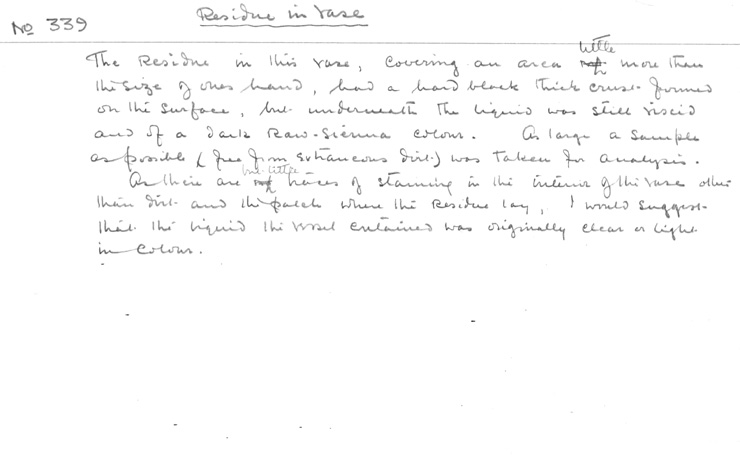 Residue in Vase
No 339
The Residue in this vase, covering an area little more than
the size of ones hand, had a hard black thick crust formed
on the surface, but underneath the liquid was still viscid
and of a dark Raw-Sienna colour. As large a sample
as possible (free from extraneous dirt) was taken for analysis.
As there are but little traces of staining in the interior of the vase other
than dirt and the patch where the Residue lay, I would suggest
that the liquid the vessel contained was originally clear or light
in colour.